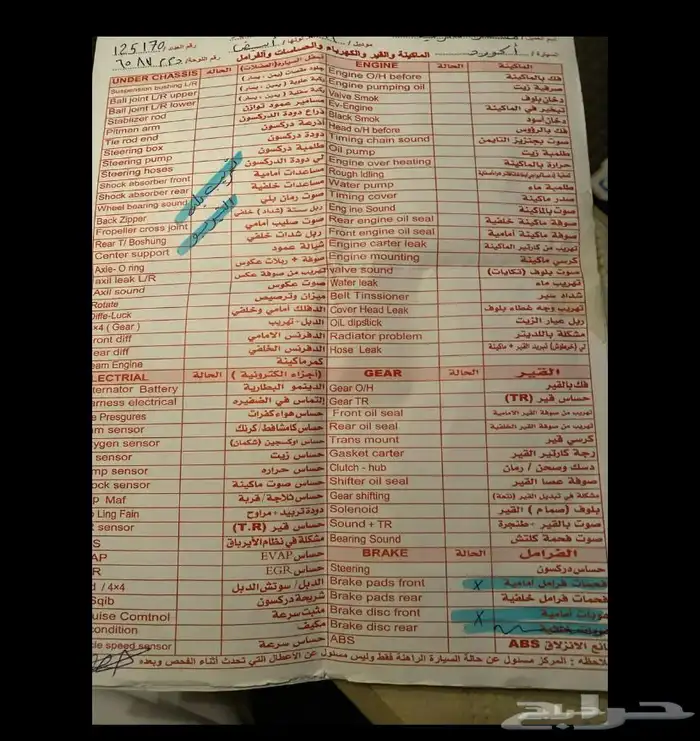 رقم العداد / 125170
السيارة / أكورد
موديل /
رقم اللوحة /
الماكينة والقير والكهرباء والحساسات والفرامل
UNDER CHASSIS الحالة
Suspension bushing L/R جلود مقصات (يمين ، يسار)
Ball joint L/R upper
Ball joint L/R lower
Stablizer rod مسامير عمود توازن
Pitman arm ذراع دودة الدركسون
Tie rod end أذرعة دركسون
Steering box دودة دركسون
Steering pump طلمبة دركسون
Steering hoses لي دودة الدركسون
Shock absorber front مساعدات أمامية
Shock absorber rear مساعدات خلفية
Wheel bearing sound صوت رمان بلي
Back Zipper
Fropeller cross joint صوت صليب أمامي
Rear T/ Boshung ربل شدات خلفي
Center support شيالة عمود
Axle- O ring صوفة + ربلات عكوس
axil leak L/R تهريب من صوفة عكس
Axil sound صوت عكوس
Rotate ميزان وترصيص
Diffe-Luck الدفلك أمامي وخلفي
×4 ( Gear ) الدبل - تهريب
ront diff الدفرنس الامامي
ear diff الدفرنس الخلفي
eam Engine كمر ماكينة
ENGINE الحالة الماكينة
Engine O/H before فك بالماكينة
Engine pumping oil صرفية زيت
Valve Smok دخان بلوف
Ev-Engine تبخير في الماكينة
Black Smok دخان أسود
Head o/H before فك بالرؤوس
Timing chain sound صوت بجنزير التايمن
Oil pump طلمبة زيت
Engine over heating حرارة بالماكينة
Rough Idling
Water pump طلمبة ماء
Timing cover صدر ماكينة
Engine Sound صوت بالماكينة
Rear engine oil seal صوفة ماكينة خلفية
Front engine oil seal صوفة ماكينة أمامية
Engine carter leak تهريب من كارتير الماكينة
Engine mounting كرسي ماكينة
Valve sound صوت بلوف (تكايات)
Water leak تهريب ماء
Belt Tinssioner شداد سير
Cover Head Leak تهريب وجه غطاء بلوف
OiL dipstick ربل عيار الزيت
Radiator problem مشكلة باللديتر
Hose Leak لي (خرطوش) أنبريد القير + ماكينة
LECTRIAL الحالة (أجزاء الكترونية)
ternator Battery الدينمو البطارية
arness electrical إلتماس في الضفيره
e Presgures حساس هواء كفرات
am sensor حساس كامشافط/ كرنك
xygen sensor حساس اوكسجين (شكمان)
sensor حساس زيت
mp sensor حساس حراره
ock sensor حساس صوت ماكينة
p Maf حساس ثلاجة / قربة
o Ling Fain دودة تربيد + مراوح
R sensor حساس قير (T.R)
S مشكلة في نظام الأيرباق
AP حساس EVAP
R حساس EGR
d / 4×4 الدبل / سوتش الدبل
Sqib شريحة دركسون
uise Comtnol مثبت سرعة
condition مكيف
le speed sensor حساس سرعة
GEAR الحالة القير
Gear O/H فك بالقير
Gear TR حساس قير (TR)
Front oil seal تهريب من صوفة القير الامامية
Rear oil seal تهريب من صوفة القير الخلفية
Trans mount كرسي قير
Gasket carter رجة كارتير القير
Clutch - hub دسك وصحن / رمان
Shifter oil seal صوفة عصا القير
Gear shifting مشكلة في تبديل القير (نتعة)
Solenoid بلوف (صمام) القير
Sound + TR صوت بالقير + طنجرة
Bearing Sound صوت فحمة كلتش
BRAKE الحالة الفرامل
Steering حساس دركسون
Brake pads front × فحمات فرامل أمامية
Brake pads rear فحمات فرامل خلفية
Brake disc front × هوبات أمامية
Brake disc rear هوبات خلفية
ABS مانع الانزلاق ABS
ملاحظه : المركز مسئول عن حالة السيارة الراهنة فقط وليس مسئول عن الأعطال التي تحدث أثناء الفحص وبعده
حراج